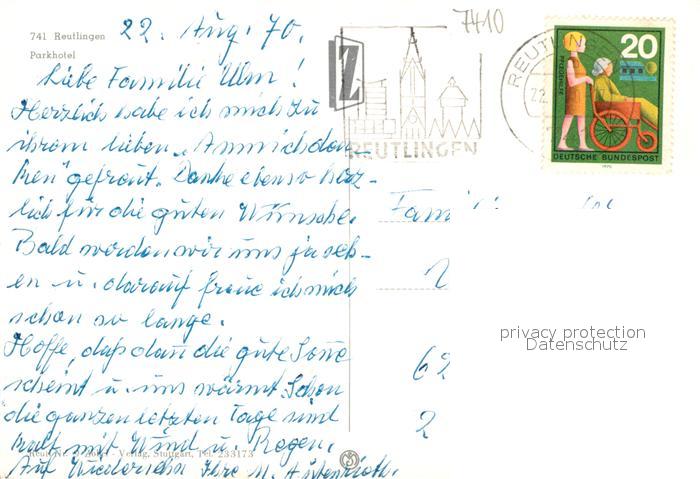 741 Reutlingen
Parkhotel
22. Aug. 70.
7410
Liebe Familie Ulm!
Herzlich habe ich mich zu
ihrem lieben „An mich den-
ken" gefreut. Danke ebenso herz-
lich für die guten Wünsche.
Bald werden wir uns ja seh-
en u. darauf freue ich mich
schon so lange.
Hoffe, daß dan die gute Sone
scheint u. uns wärmt. Schon
die ganzen letzten Tage sind
kalt mit Wind u. Regen.
Auf Wiedersehn Ihre M.
Verlag, Stuttgart, Tel. 233173
Z
REUTLINGEN
REUTLIN
22.
20
DEUTSCHE BUNDESPOST
1970
Fami
62
2
privacy protection
Datenschutz